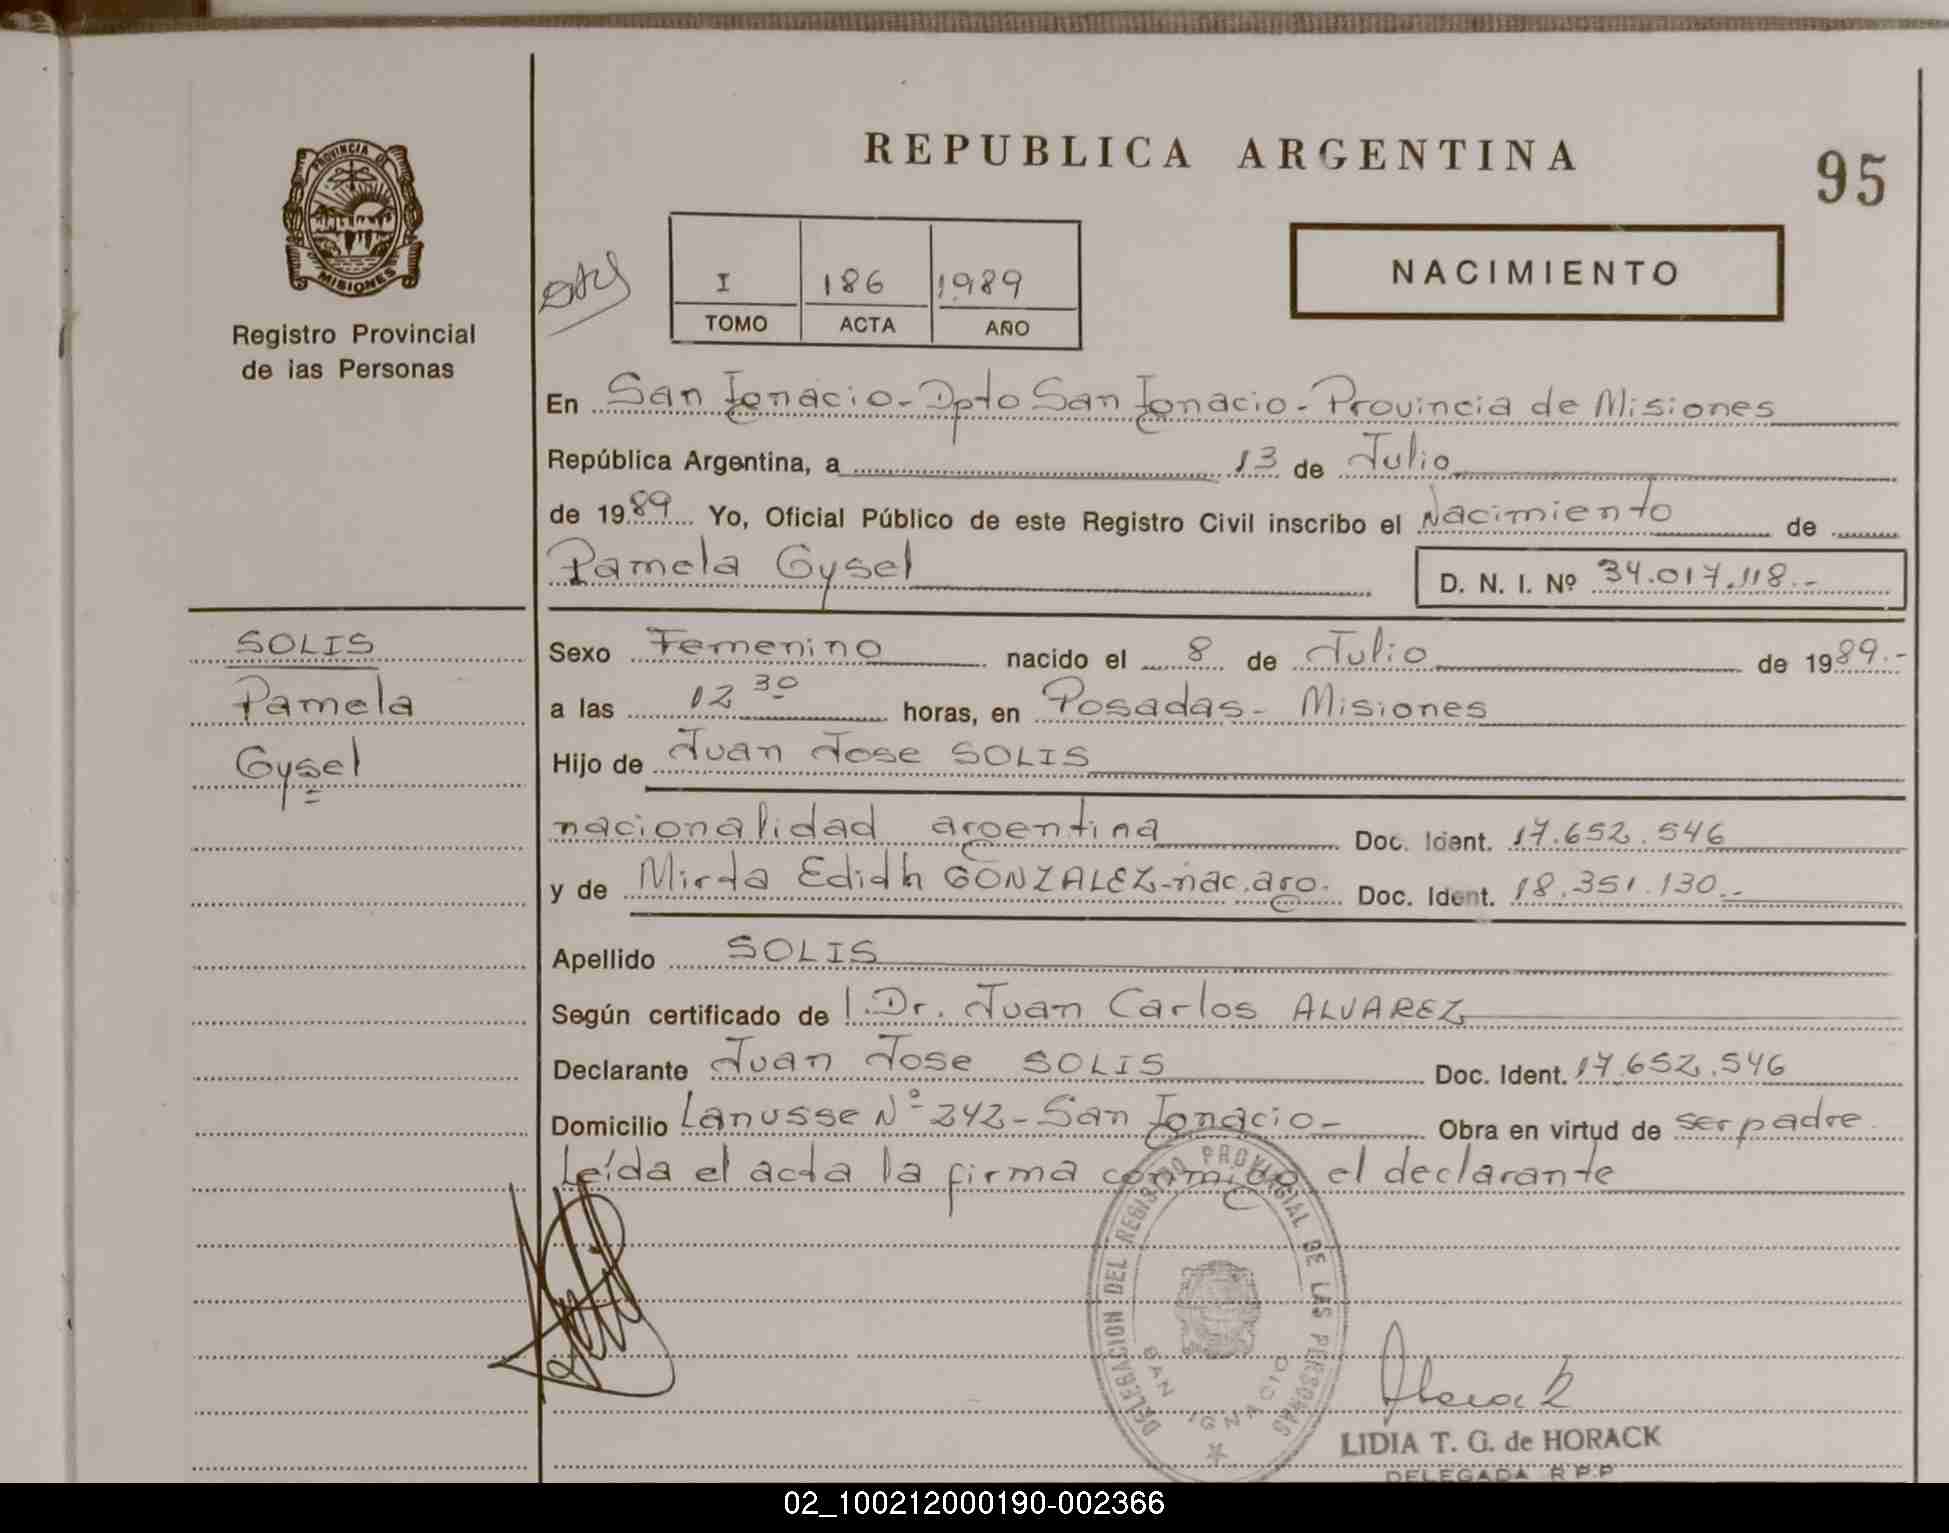 REPUBLICA ARGENTINA
95
PROVINCIA DE
MISIONES
Registro Provincial
de las Personas
I 186 1989
TOMO ACTA AÑO
NACIMIENTO
En San Ignacio - Dpto San Ignacio - Provincia de Misiones
República Argentina, a 13 de Julio
de 1989 Yo, Oficial Público de este Registro Civil inscribo el Nacimiento de
Pamela Gysel D. N. I. Nº 34.017.118.-
SOLIS
Pamela
Gysel
Sexo Femenino nacido el 8 de Julio de 1989.-
a las 12 30 horas, en Posadas - Misiones
Hijo de Juan Jose SOLIS
nacionalidad argentina Doc. Ident. 17.652.546
y de Mirta Edith GONZALEZ - nac. arg. Doc. Ident. 18.351.130.-
Apellido SOLIS
Según certificado de l. Dr. Juan Carlos ALVAREZ
Declarante Juan Jose SOLIS Doc. Ident. 17.652.546
Domicilio Lanusse Nº 242 - San Ignacio - Obra en virtud de ser padre
Leída el acta la firma conmigo el declarante
DELEGACION DEL REGISTRO PROVINCIAL DE LAS PERSONAS
SAN IGNACIO
LIDIA T. G. de HORACK
DELEGADA R.P.P
02_100212000190-002366